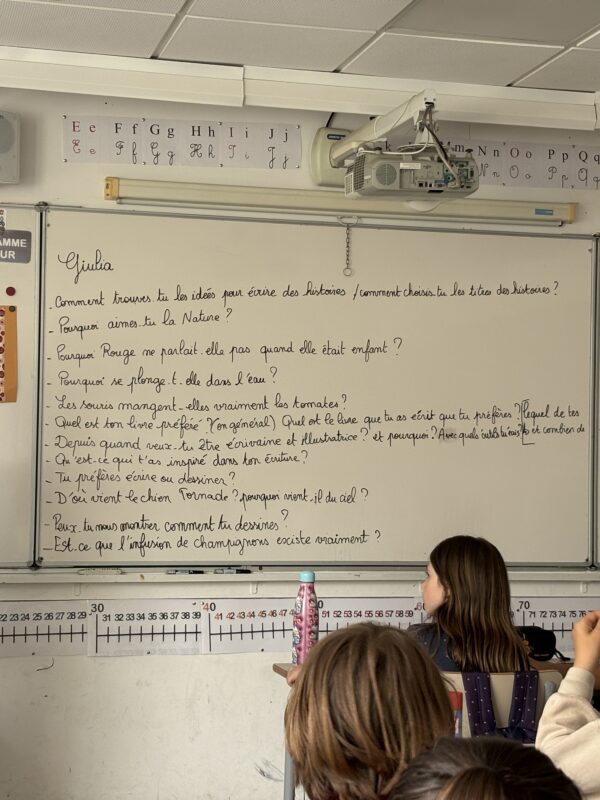 E e F f G g H h I i J j k m N n O o P p Q q
E e F f G g H h I i J j N n O o P p Q q
AMME
UR
Giulia
- Comment trouves-tu les idées pour écrire des histoires / comment choisis-tu les titres des histoires ?
- Pourquoi aimes-tu la Nature ?
- Pourquoi Rouge ne parlait-elle pas quand elle était enfant ?
- Pourquoi se plonge-t-elle dans l'eau ?
- Les souris mangent-elles vraiment les tomates ?
- Quel est ton livre préféré ? (en général) Quel est le livre que tu as écrit que tu préfères ? lequel de tes
- Depuis quand veux-tu être écrivaine et illustratrice ? et pourquoi ? Avec quels outils tu et combien de
- Qu'est-ce qui t'as inspiré dans ton écriture ?
- Tu préfères écrire ou dessiner ?
- D'où vient le chien Tornade ? pourquoi vient-il du ciel ?
- Peux-tu nous montrer comment tu dessines ?
- Est-ce que l'infusion de champignons existe vraiment ?
30 40 70
22 23 24 25 26 27 28 29 31 32 33 34 35 36 37 38 39 41 42 43 44 45 46 47 48 49 51 52 53 54 55 56 57 58 59 71 72 73 74 75 76